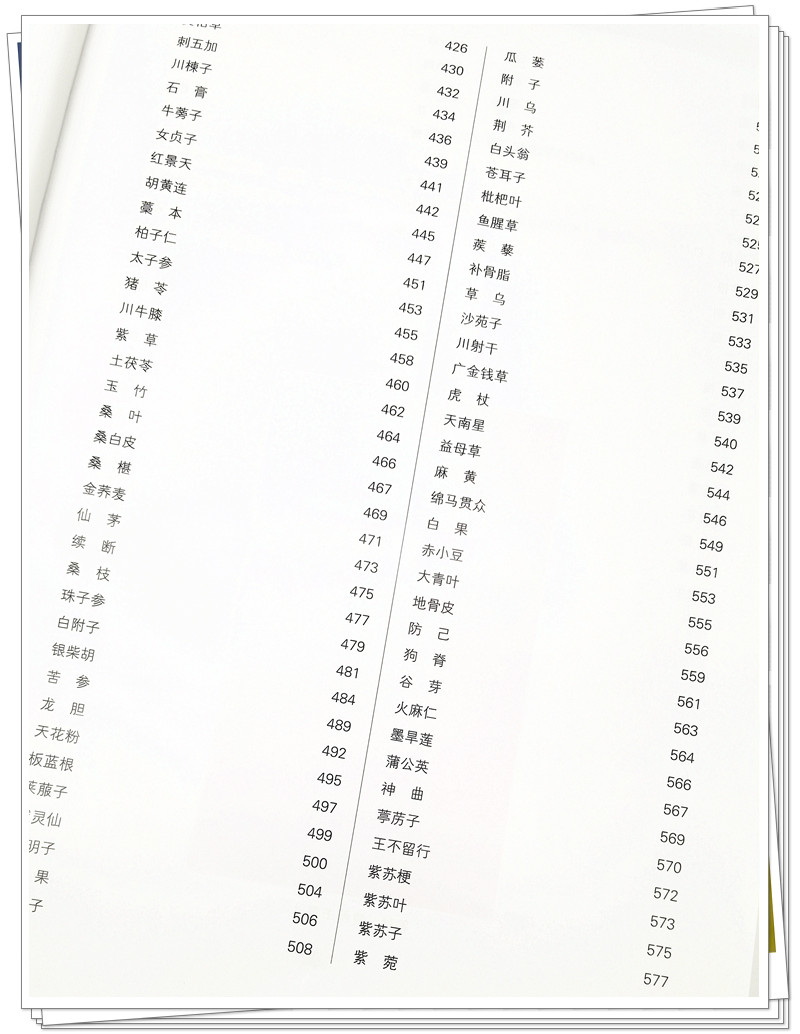 刺五加
川楝子
石 膏
牛蒡子
女贞子
红景天
胡黄连
藁 本
柏子仁
太子参
猪 苓
川牛膝
紫 草
土茯苓
玉 竹
桑 叶
桑白皮
桑 椹
金荞麦
仙 茅
续 断
桑 枝
珠子参
白附子
银柴胡
苦 参
龙 胆
天花粉
板蓝根
莱菔子
灵仙
明子
果
子
426
430
432
434
436
439
441
442
445
447
451
453
455
458
460
462
464
466
467
469
471
473
475
477
479
481
484
489
492
495
497
499
500
504
506
508
瓜 蒌
附 子
川 乌
荆 芥
白头翁
苍耳子
枇杷叶
鱼腥草
蒺 藜
补骨脂
草 乌
沙苑子
川射干
广金钱草
虎 杖
天南星
益母草
麻 黄
绵马贯众
白 果
赤小豆
大青叶
地骨皮
防 己
狗 脊
谷 芽
火麻仁
墨旱莲
蒲公英
神 曲
葶苈子
王不留行
紫苏梗
紫苏叶
紫苏子
紫 菀
525
527
529
531
533
535
537
539
540
542
544
546
549
551
553
555
556
559
561
563
564
566
567
569
570
572
573
575
577